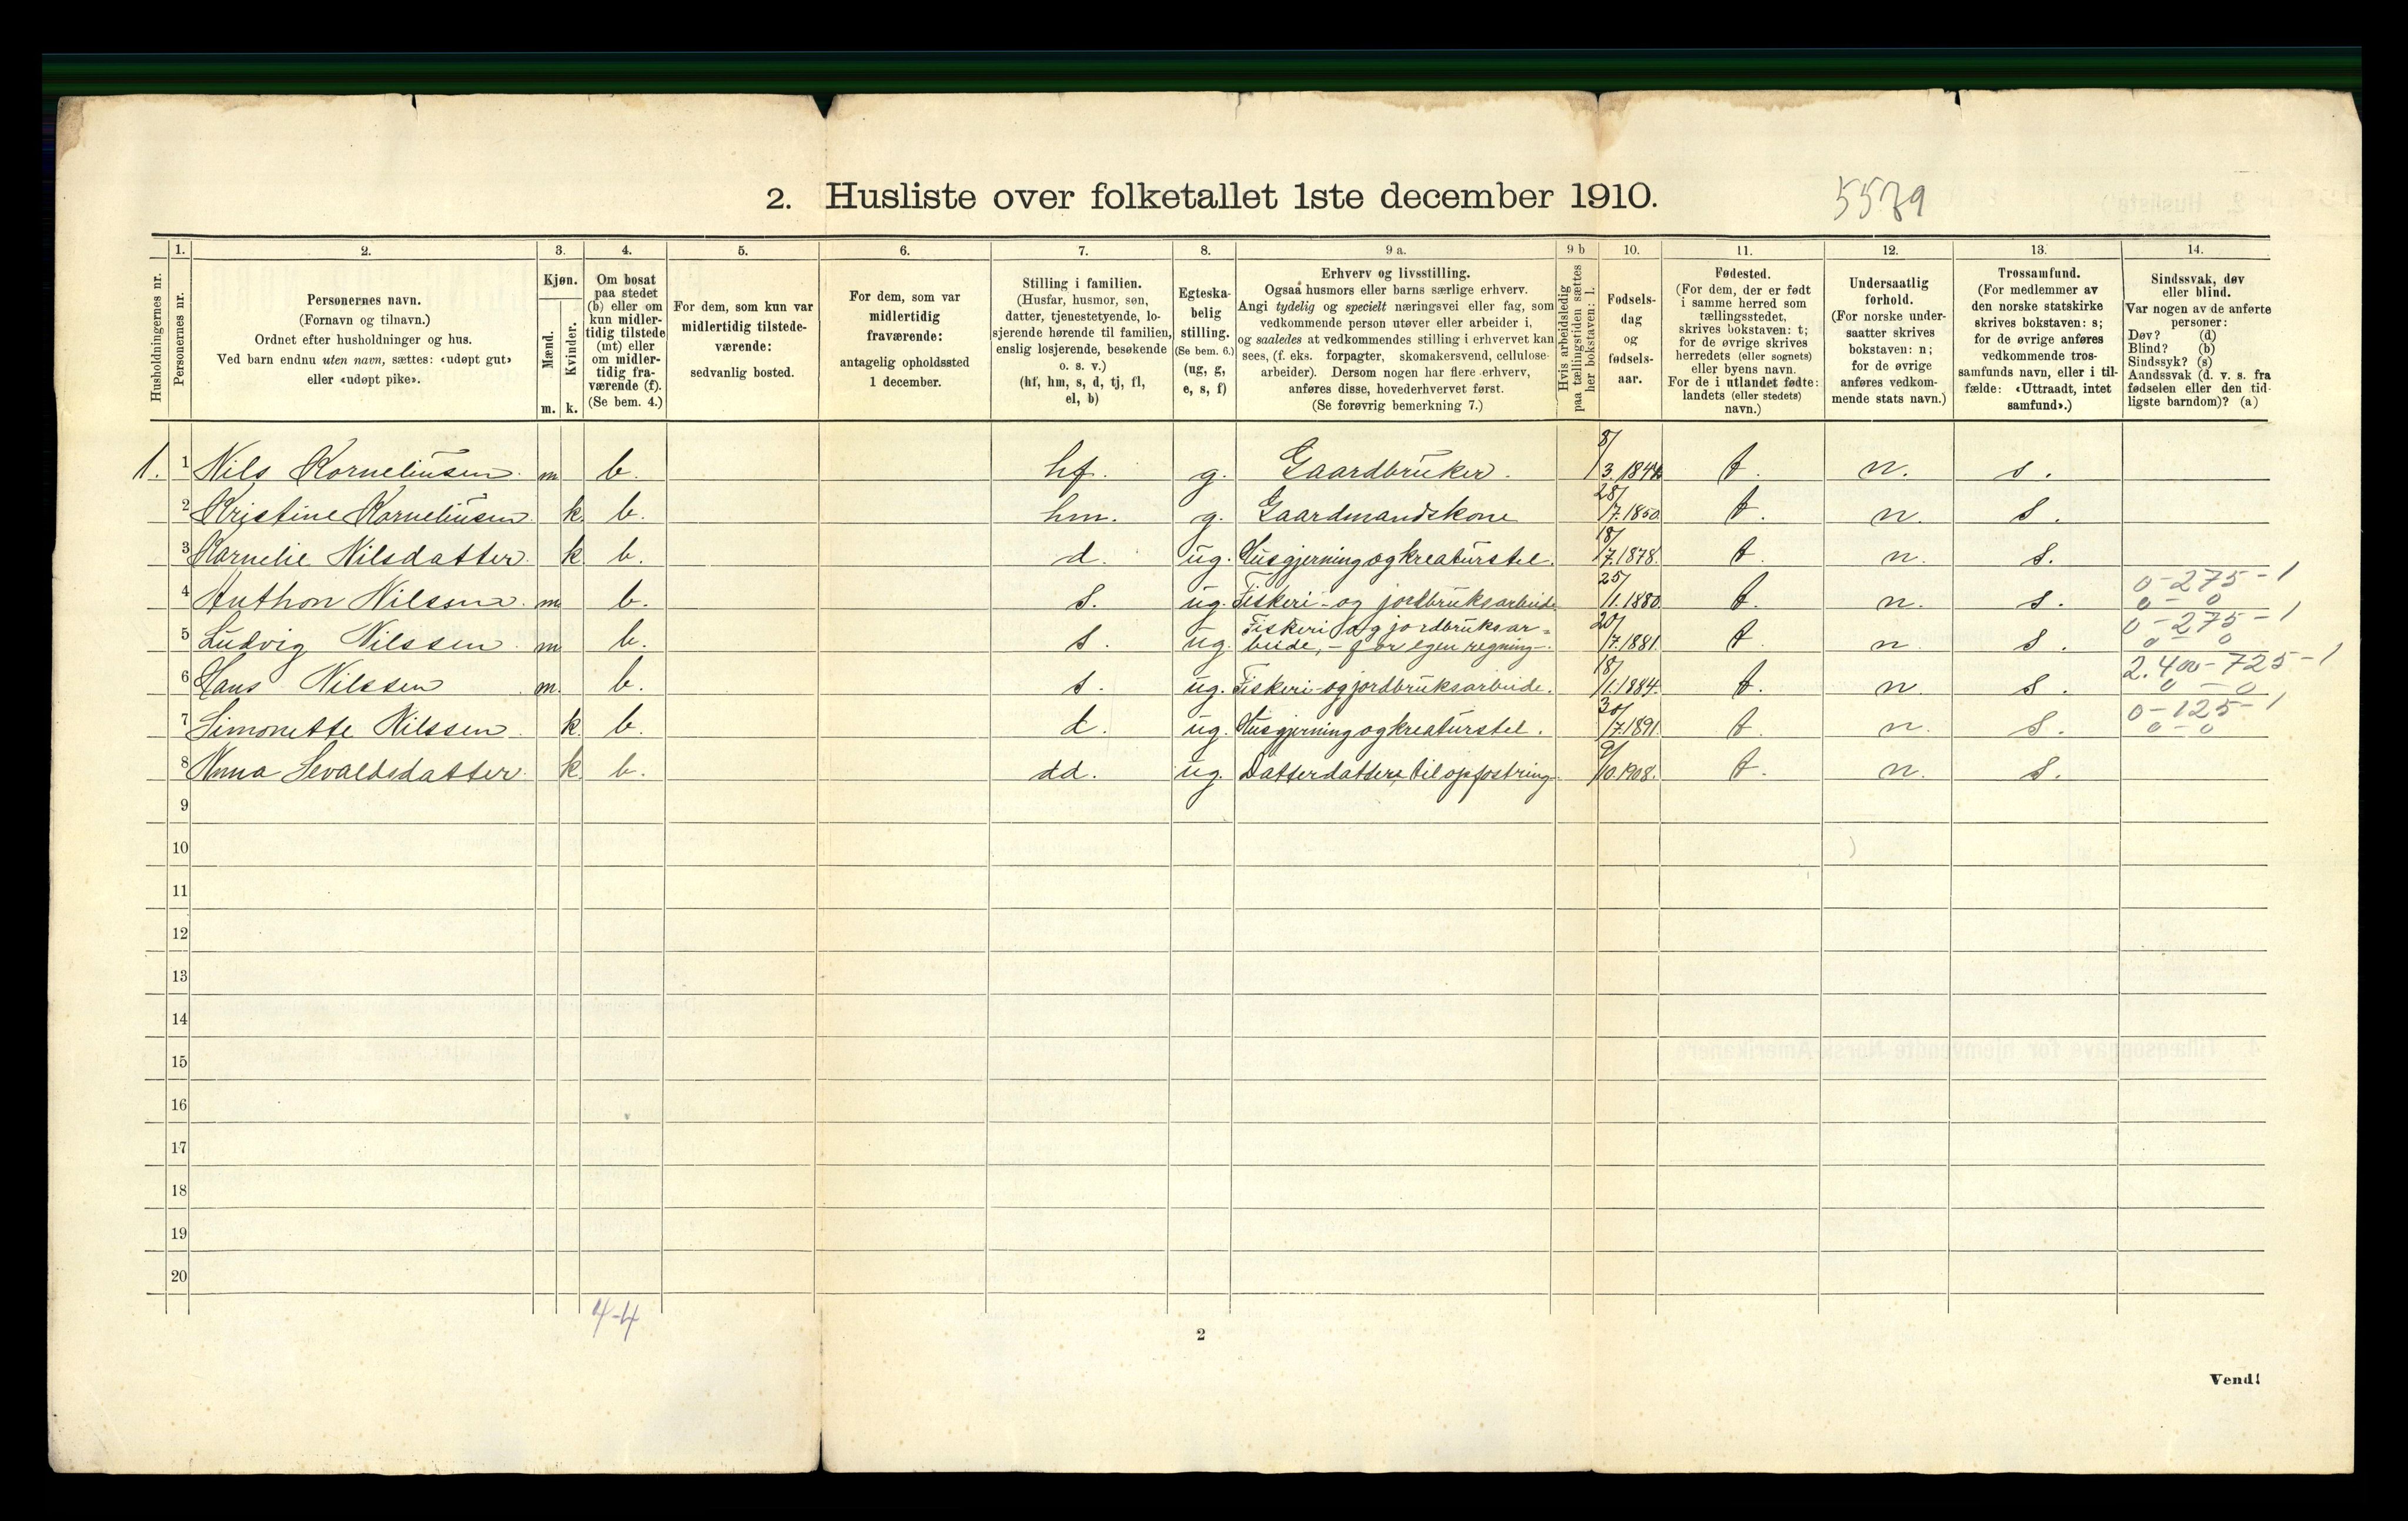 2. Husliste over folketallet 1ste december 1910.
5579
Husholdningernes nr.
1.
Personernes nr.
2.
Personernes navn.
(Fornavn og tilnavn.)
Ordnet efter husholdninger og hus.
Ved barn endnu uten navn, sættes: «udøpt gut»
eller «udøpt pike».
3.
Kjøn.
Mænd.
Kvinder.
m. k.
4.
Om bosat
paa stedet
(b) eller om
kun midler-
tidig tilstede
(mt) eller
om midler-
tidig fra-
værende (f).
(Se bem. 4.)
5.
For dem, som kun var
midlertidig tilstede-
værende:
sedvanlig bosted.
6.
For dem, som var
midlertidig
fraværende:
antagelig opholdssted
1 december.
7.
Stilling i familien.
(Husfar, husmor, søn,
datter, tjenestetyende, lo-
sjerende hørende til familien,
enslig losjerende, besøkende
o. s. v.)
(hf, hm, s, d, tj, fl,
el, b)
8.
Egteska-
belig
stilling.
(Se bem. 6.)
(ug, g,
e, s, f)
9 a.
Erhverv og livsstilling.
Ogsaa husmors eller barns særlige erhverv.
Angi tydelig og specielt næringsvei eller fag, som
vedkommende person utøver eller arbeider i,
og saaledes at vedkommendes stilling i erhvervet kan
sees, (f. eks. forpagter, skomakersvend, cellulose-
arbeider). Dersom nogen har flere erhverv,
anføres disse, hovederhvervet først.
(Se forøvrig bemerkning 7.)
9 b
Hvis arbeidsledig
paa tællingstiden sættes
her bokstaven: l.
10.
Fødsels-
dag
og
fødsels-
aar.
11.
Fødested.
(For dem, der er født
i samme herred som
tællingsstedet,
skrives bokstaven: t;
for de øvrige skrives
herredets (eller sognets)
eller byens navn.
For de i utlandet fødte:
landets (eller stedets)
navn.)
12.
Undersaatlig
forhold.
(For norske under-
saatter skrives
bokstaven: n;
for de øvrige
anføres vedkom-
mende stats navn.)
13.
Trossamfund.
(For medlemmer av
den norske statskirke
skrives bokstaven: s;
for de øvrige anføres
vedkommende tros-
samfunds navn, eller i til-
fælde: «Uttraadt, intet
samfund».)
14.
Sindssvak, døv
eller blind.
Var nogen av de anførte
personer:
Døv? (d)
Blind? (b)
Sindssyk? (s)
Aandssvak (d. v. s. fra
fødselen eller den tid-
ligste barndom)? (a)
1. 1 Nils Korneliusen. m b. hf. g. Gaardbruker. 8/3 1844 t. n. s.
2 Kristine Korneliusen k. b. hm. g. Gaardmandskone 28/7 1850. t. n. s.
3 Karnelie Nilsdatter. k b. d. ug. Husgjerning og kreaturstel. 18/7 1878. t. n. s.
4 Anthon Nilssen. m b. s. ug. Fiskeri- og jordbruksarbeide 25/1. 1880. t. n. s. 0-275-1
0-0
5 Ludvig Nilssen. m b. s. ug. Fiskeri og jordbruksar=
beide, - for egen regning-. 20/7. 1881. t. n. s. 0-275-1
0-0
6 Hans Nilssen m. b. s. ug. Fiskeri- og jordbruksarbeide. 18/1. 1884. t. n. s. 2.400-725-1
0-0
7 Simonette Nilssen. k. b. d. ug. Husgjerning og kreaturstel. 30/7. 1891. t. n. s. 0-125-1
0-0
8 Anna Sevaldsdatter. k b. dd. ug. Datterdatter, til opfostring. 9/10. 1908. t. n. s.
9
10
11
12
13
14
15
16
17
18
19
20
4-4
2
Vend!